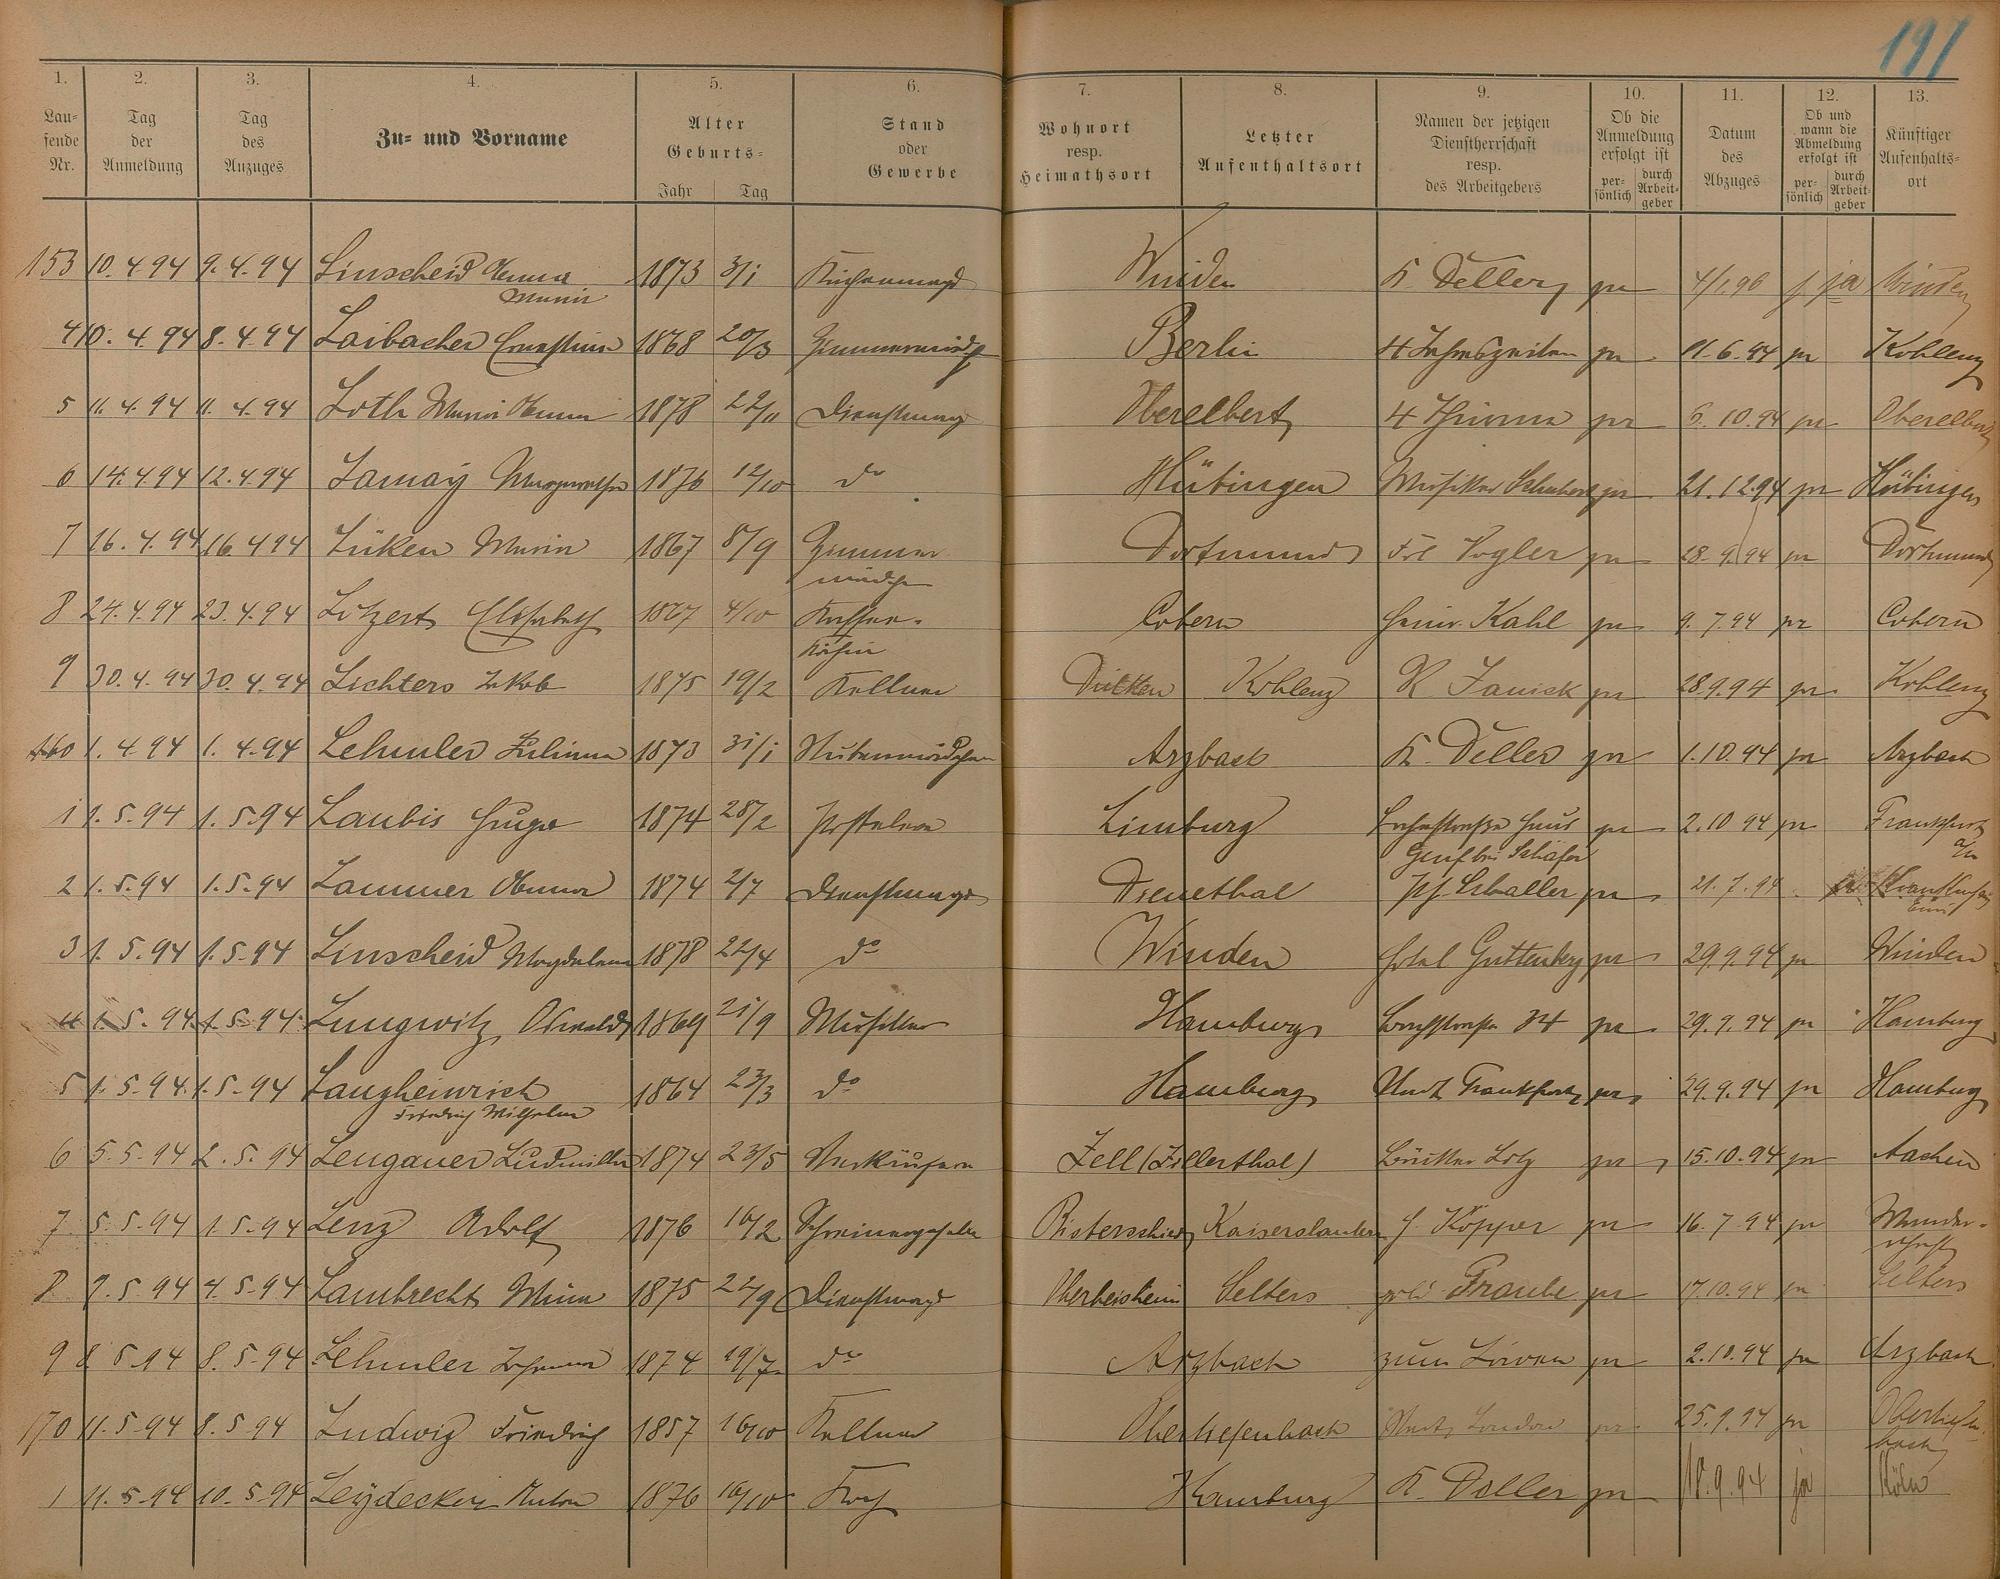 191
1. 2. 3. 4. 5. 6. 7. 8. 9. 10. 11. 12. 13.
Lau-
fende
Nr.
Tag
der
Anmeldung
Tag
des
Anzuges
Zu- und Vorname
Alter
Geburts-
Jahr Tag
Stand
oder
Gewerbe
Wohnort
resp.
Heimathsort
Letzter
Aufenthaltsort
Namen der jetzigen
Dienstherrschaft
resp.
des Arbeitgebers
Ob die
Anmeldung
erfolgt ist
per-
sönlich
durch
Arbeit-
geber
Datum
des
Abzuges
Ob und
wann die
Abmeldung
erfolgt ist
per-
sönlich
durch
Arbeit-
geber
Künftiger
Aufenthalts-
ort
153 10.4.94 9.4.94 Linscheid Anna 1873 3/1 Küchenmagd Winden K. Deller ja 4/1.96 ja Winden
Maria
4 10.4.94 8.4.94 Laibacher Ernestine 1868 20/3 Zimmermädch Berlin 4 Jahreszeiten ja 11.6.94 ja Koblenz
5 11.4.94 11.4.94 Loth Maria Anna 1878 22/11 Dienstmagd Oberelbert 4 Thürme ja 6.10.94 ja Oberelbert
6 14.4.94 12.4.94 Lamay Margaretha 1876 12/10 do Hübingen Musiker Schubert ja 21.12.94 ja Hübingen
7 16.4.94 16.4.94 Lüken Maria 1867 8/9 Zimmer Dortmund Frl Vogler ja 28.9.94 ja Dortmund
mädch
8 24.4.94 23.4.94 Lotzert Elisabeth 1867 4/10 Kaffee- Cobern Heinr. Kahl ja 9.7.94 ja Cobern
köchin
9 30.4.94 30.4.94 Lichters Jakob 1875 19/2 Kellner Dülken Koblenz R Janick ja 28.9.94 ja Koblenz
160 1.4.94 1.4.94 Lehmler Juliana 1873 31/1 Stubenmädchen Arzbach K. Deller ja 1.10.94 ja Arzbach
1 1.5.94 1.5.94 Laubis Hugo 1874 28/2 Posteleve Limburg Haus ja 2.10.94 ja Frankfurt
Genf bei Schäfer a/M
2 1.5.94 1.5.94 Lammer Anna 1874 2/7 Dienstmagd Dienethal Ph. Schaller ja 21.7.94 ja Krankenhaus
Ems
3 1.5.94 1.5.94 Linscheid Magdalena 1878 22/4 do Winden Hotel Guttenberg ja 29.9.94 ja Winden
4 1.5.94 1.5.94 Lungwitz Oswald 1869 21/9 Musiker Hamburg 34 ja 29.9.94 ja Hamburg
5 1.5.94 1.5.94 Langheinrich 1864 23/3 do Hamburg Stadt Frankfurt ja 29.9.94 ja Hamburg
Friedrich Wilhelm
6 5.5.94 2.5.94 Lengauer Ludmilla 1874 23/5 Verkäuferin Zell (Zillerthal) Bäcker Lotz ja 15.10.94 ja Aachen
7 5.5.94 1.5.94 Lenz Adolf 1876 16/2 Schreinergeselle Kaiserslautern H. Köpper ja 16.7.94 ja Wander-
schaft
8 9.5.94 4.5.94 Lambrecht Mina 1875 22/9 Dienstmagd Selters gold Traube ja 17.10.94 ja Selters
9 8.5.94 8.5.94 Lehmler Johanna 1874 19/7 do Arzbach zum Löwen ja 2.10.94 ja Arzbach
170 11.5.94 8.5.94 Ludwig Friedrich 1857 16/10 Kellner Obertiefenbach Stadt London ja 25.9.94 ja Obertiefen-
bach
1 11.5.94 10.5.94 Leydecker Anton 1876 16/10 Koch Hamburg K. Deller ja 18.9.94 ja Köln